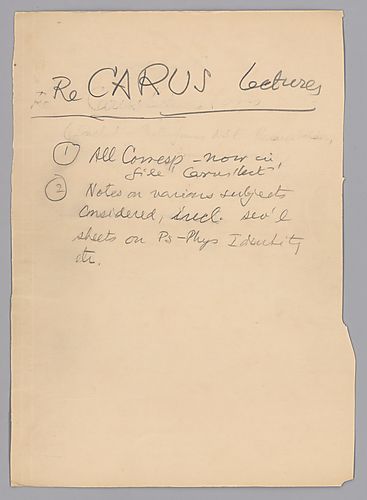 Re CARUS Lectures
① All Corresp - now in
file "Carus Lect"
② Notes on various subjects
considered, incl. sev'l
sheets on Ps-Phys Identity
etc.